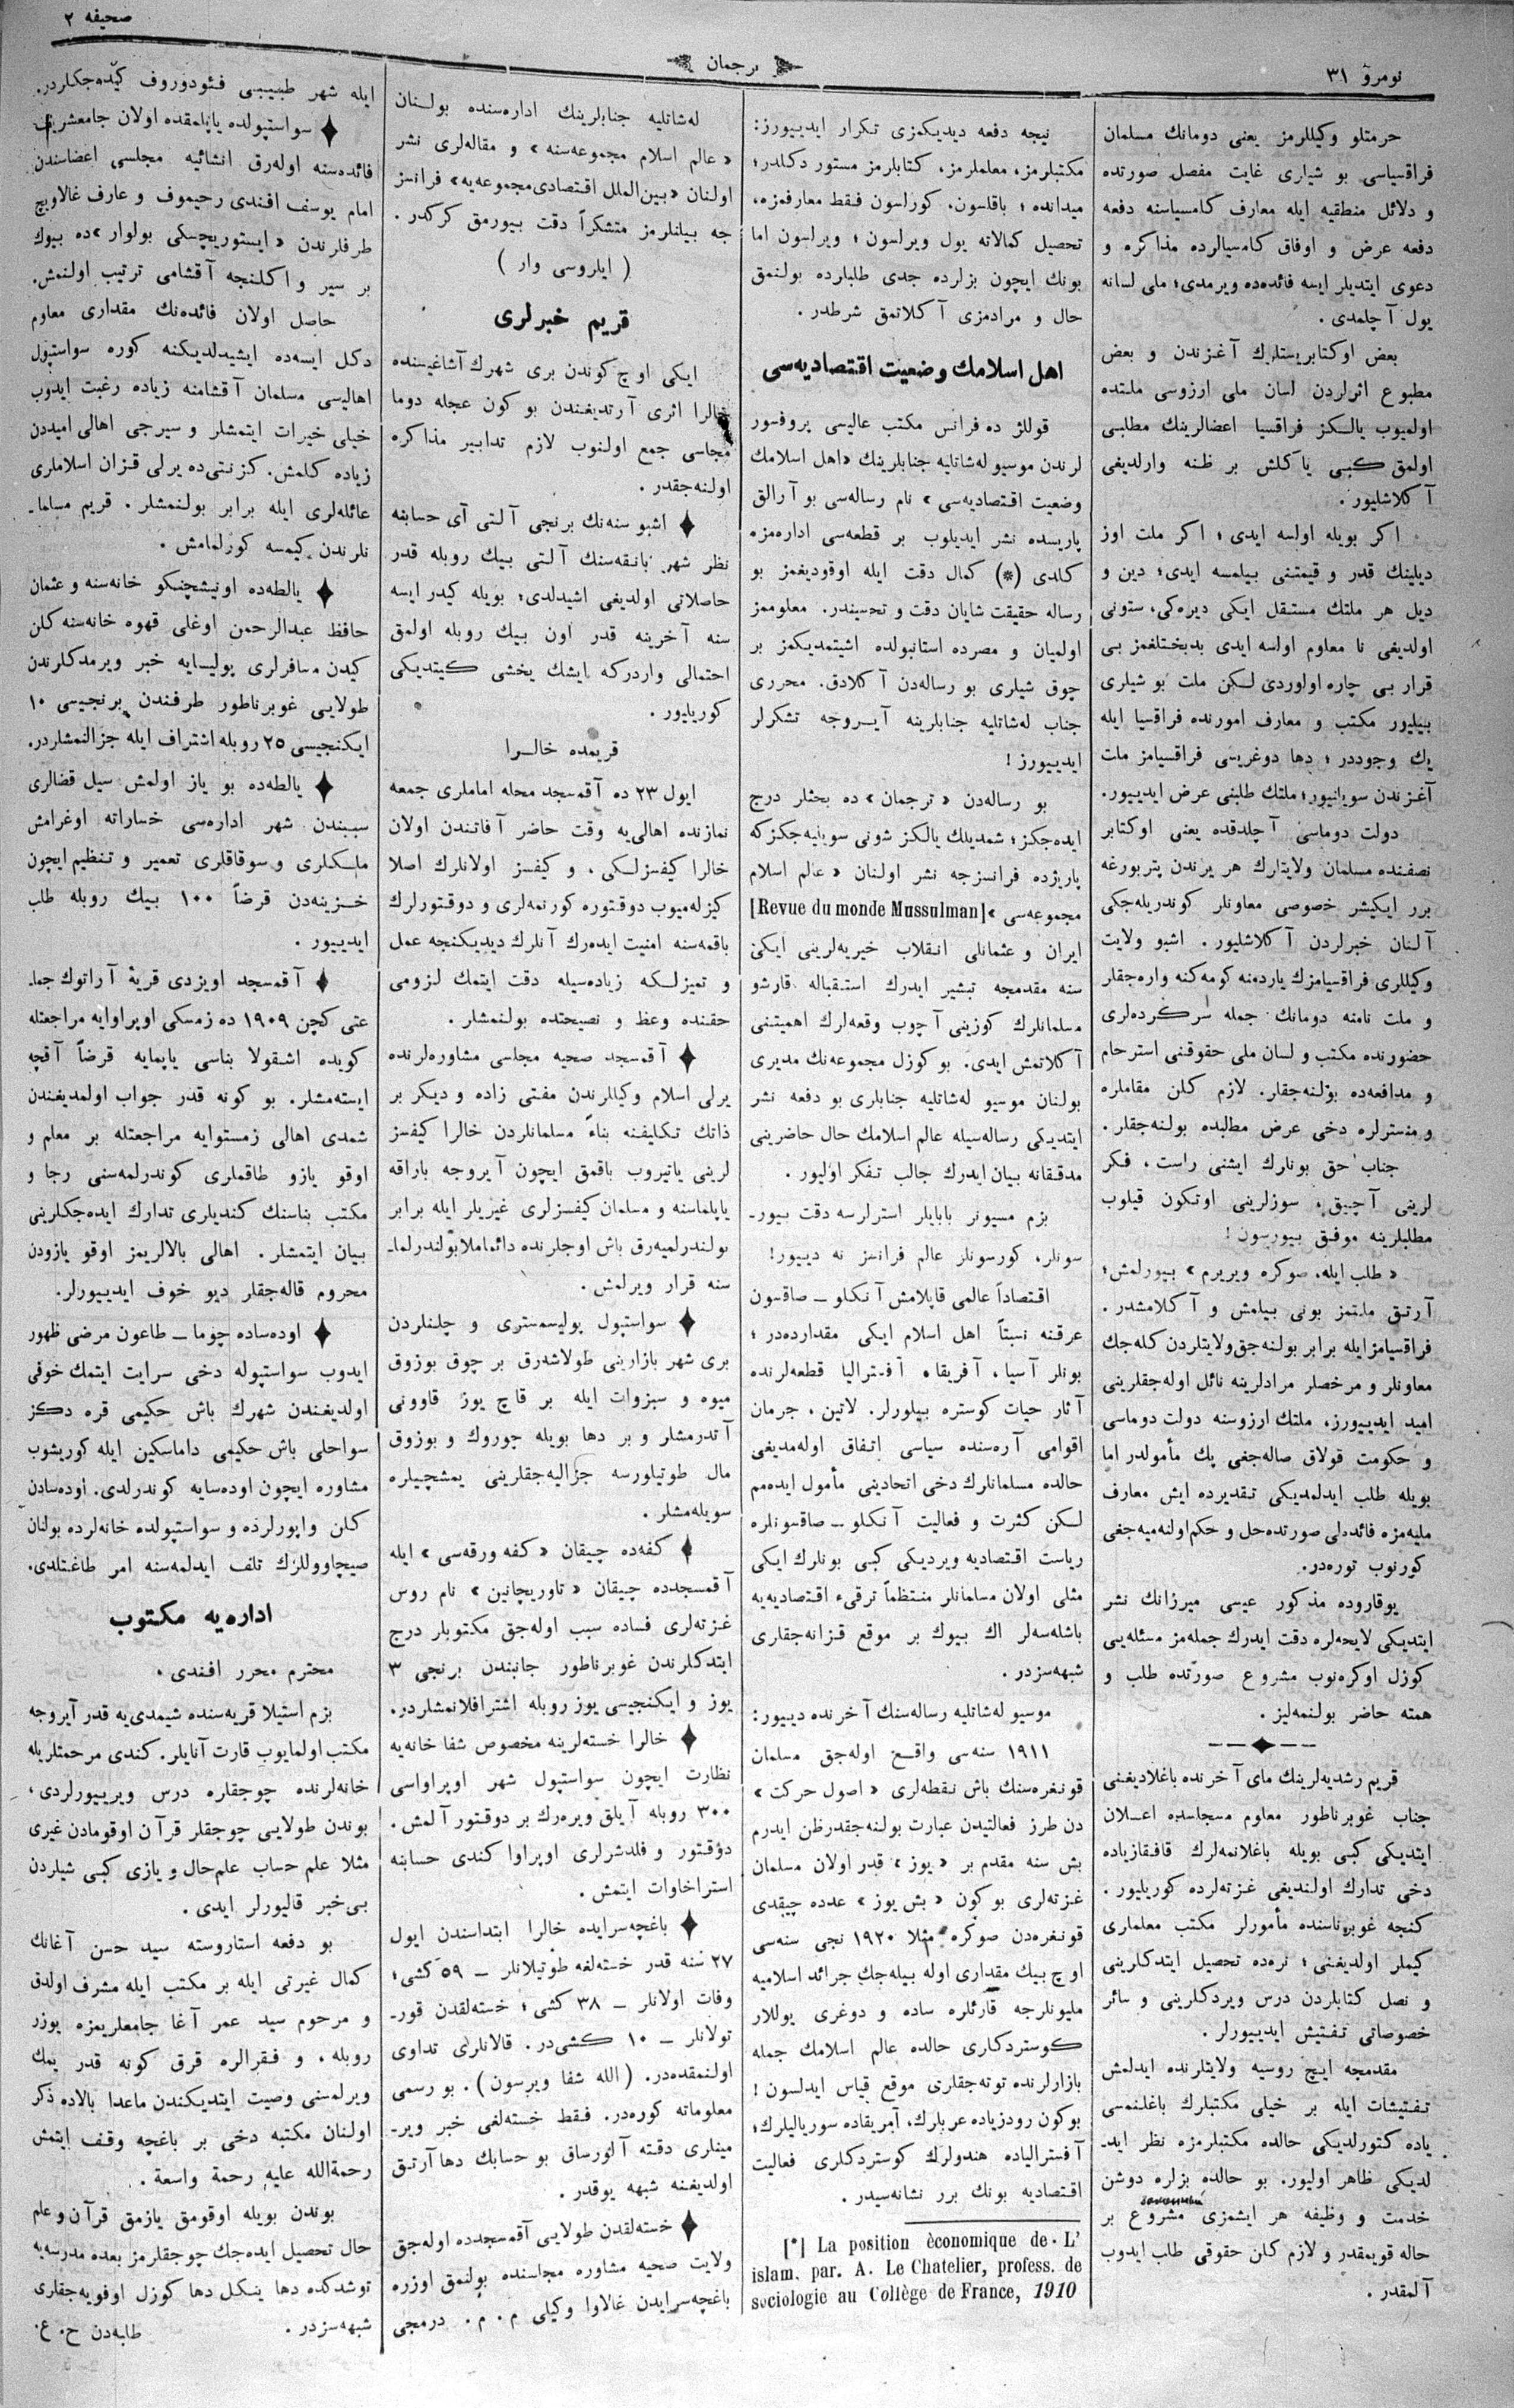 نومرو ٣١
ترجمان
صحيفه ٢
حرمتلو وكيللرمز يعنى دومانك مسلمان
فراقسياسى بو شيلرى غايت مفصل صورتده
و دلائل منطقيه ايله معارف كاميسياسنه دفعه
دفعه عرض و اوفاق كاميسيالرده مذاكره و
دعوى ايتديلر ايسه فائده‌ده ويرمدى؛ ملى لسانه
يول آچلمدى.
بعض اوكتابريستلرك آغزندن و بعض
مطبوع اثرلردن لسان ملى ارزوسى ملتده
اولميوب يالكز فراقسيا اعضالرينك مطلبى
اولمق كبى ياكلش بر ظنه وارلديغى
آكلاشليور.
اكر بويله اولسه ايدى؛ اكر ملت اوز
ديلينك قدر و قيمتنى بيلمسه ايدى؛ دين و
ديل هر ملتك مستقل ايكى ديره‌كى، ستونى
اولديغى نا معلوم اولسه ايدى بدبختلغمز بى
قرار بى چاره اولوردى لكن ملت بو شيلرى
بيليور مكتب و معارف امورنده فراقسيا ايله
يك وجوددر؛ دها دوغريسى فراقسيامز ملت
آغزندن سويلنيور؛ ملتك طلبنى عرض ايدييور.
دولت دوماسى آچلدقده يعنى اوكتابر
نصفنده مسلمان ولايتلرك هر يرندن پتربورغه
برر ايكيشر خصوصى معاونلر كوندريله‌جكى
آلنان خبرلردن آكلاشليور. اشبو ولايت
وكيللرى فراقسيامزك ياردمنه كومه‌كنه واره‌جقلر
و ملت نامنه دومانك جمله سركرده‌لرى
حضورنده مكتب و لسان ملى حقوقنى استرحام
و مدافعه‌ده بولنه‌جقلر. لازم كلن مقاملره
و منسترلره دخى عرض مطالبده بولنه‌جقلر.
جناب حق بونلرك ايشنى راست، فكر
لرينى آچيق، سوزلرينى اوتكون قيلوب
مطلبلرينه موفق بيورسون!
« طلب ايله، صوكره ويريرم » بيورلمش؛
آرتق ملتمز بونى بيلمش و آكلامشدر.
فراقسيامز ايله برابر بولنه‌جق ولايتلردن كله‌جك
معاونلر و مرخصلر مرادلرينه نائل اوله‌جقلرينى
اميد ايدييورز، ملتك ارزوسنه دولت دوماسى
و حكومت قولاق صاله‌جغى پك مأمولدر اما
بويله طلب ايدلمديكى تقديرده ايش معارف
مليه‌مزه فائده‌لى صورتده حل و حكم اولنه‌ميه‌جغى
كورنوب توره‌در.
يوقاروده مذكور عيسى ميرزانك نشر
ايتديكى لايحه‌لره دقت ايدرك جمله‌مز مسئله‌يى
كوزل اوكره‌نوب مشروع صورتده طلب و
همته حاضر بولنمه‌ليز.
قريم رشديه‌لرينك ماى آخرنده باغلاديغنى
جناب غوبرناطور معلوم مجلسده اعلان
ايتديكى كبى بويله باغلانمه‌لرك قافقازياده
دخى تدارك اولنديغى غزته‌لرده كوريليور.
كنجه غوبرناسنده مأمورلر مكتب معلملرى
كيملر اولديغنى؛ نره‌ده تحصيل ايتدكلرينى
و نصل كتابلردن درس ويردكلرينى و سائر
خصوصاتى تفتيش ايدييورلر.
مقدمجه ايچ روسيه ولايتلرنده ايدلمش
تفتيشات ايله بر خيلى مكتبلرك باغلنمسى
ياده كتورلديكى حالده مكتبلرمزه نظر ايد-
لديكى ظاهر اوليور. بو حالده بزلره دوشن
خدمت و وظيفه هر ايشمزى مشروع بر
حاله قويمقدر و لازم كلن حقوقى طلب ايدوب
آلمقدر.
نيجه دفعه ديديكمزى تكرار ايدييورز:
مكتبلرمز، معلملرمز، كتابلرمز مستور دكلدر؛
ميدانده؛ باقلسون. كورلسون فقط معارفمزه،
تحصيل كمالاته يول ويرلسون؛ ويرلسون اما
بونك ايچون بزلرده جدى طلبلرده بولنمق
حال و مرادمزى آكلاتمق شرطدر.
اهل اسلامك وضعيت اقتصاديه‌سى
قوللژ ده فرانس مكتب عاليسى پروفسور
لرندن موسيو له‌شاتليه جنابلرينك «اهل اسلامك
وضعيت اقتصاديه‌سى» نام رساله‌سى بو آرالق
پاريسده نشر ايديلوب بر قطعه‌سى اداره‌مزه
كلدى (*) كمال دقت ايله اوقوديغمز بو
رساله حقيقت شايان دقت و تحسيندر. معلوممز
اولميان و مصرده استانبولده اشيتمديكمز بر
چوق شيلرى بو رساله‌دن آكلادق. محررى
جناب له‌شاتليه جنابلرينه آيروجه تشكرلر
ايدييورز!
بو رساله‌دن «ترجمان» ده بحثلر درج
ايده‌جكز؛ شمديلك يالكز شونى سويليه‌جكزكه
پاريژده فرانسزجه نشر اولنان « عالم اسلام
مجموعه‌سى » [Revue du monde Mussulman]
ايران و عثمانلى انقلاب خيريه‌لرينى ايكى
سنه مقدمجه تبشير ايدرك استقباله قارشو
مسلمانلرك كوزينى آچوب وقعه‌لرك اهميتنى
آكلاتمش ايدى. بو كوزل مجموعه‌نك مديرى
بولنان موسيو له‌شاتليه جنابلرى بو دفعه نشر
ايتديكى رساله‌سيله عالم اسلامك حال حاضرينى
مدققانه بيان ايدرك جالب تفكر اوليور.
بزم مسيونر بابايلر استرلرسه دقت بيور-
سونلر، كورسونلر عالم فرانسز نه دييور!
اقتصاداً عالمى قاپلامش آنكلو ــ صاقسون
عرقنه نسبتاً اهل اسلام ايكى مقدارده‌در؛
بونلر آسيا، آفريقا، آفستراليا قطعه‌لرنده
آثار حيات كوستره بيلورلر. لاتين، جرمان
اقوامى آره‌سنده سياسى اتفاق اوله‌مديغى
حالده مسلمانلرك دخى اتحادينى مأمول ايده‌مم
لكن كثرت و فعاليت آنكلو ــ صاقسونلره
رياست اقتصاديه ويرديكى كبى بونلرك ايكى
مثلى اولان مسلمانلر منتظماً ترقىء اقتصاديه‌يه
باشله‌سه‌لر اك بيوك بر موقع قزانه‌جقلرى
شبهه‌سزدر.
موسيو له‌شاتليه رساله‌سنك آخرنده دييور:
١٩١١ سنه‌سى واقع اوله‌جق مسلمان
قونغره‌سنك باش نقطه‌لرى « اصول حركت »
دن طرز فعالتيدن عبارت بولنه‌جقدر ظن ايدرم
بش سنه مقدم بر « يوز » قدر اولان مسلمان
غزته‌لرى بو كون « بش يوز » عدده چيقدى
قونغره‌دن صوكره مثلا ١٩٢٠ نجى سنه‌سى
اوچ بيك مقدارى اوله بيله‌جك جرائد اسلاميه
مليونلرجه قارئلره ساده و دوغرى يوللار
كوستردكلرى حالده عالم اسلامك جمله
بازارلرنده توته‌جقلرى موقع قياس ايدلسون!
بوكون رودزياده عربلرك، آمريقاده سورياليلرك؛
آفسترالياده هندولرك كوستردكلرى فعاليت
اقتصاديه بونك برر نشانه‌سيدر.
[*] La position èconomique de L'
islam. par. A. Le Chatelier, profess. de
sociologie au Collège de France, 1910
له‌شاتليه جنابلرينك اداره‌سنده بولنان
« عالم اسلام مجموعه‌سنه » و مقاله‌لرى نشر
اولنان «بين‌الملل اقتصادى مجموعه‌يه» فرانسز
جه بيلنلرمز متشكراً دقت بيورمق كركدر.
( ايلروسى وار )
قريم خبرلرى
ايكى اوچ كوندن برى شهرك آشاغيسنده
خالرا اثرى آرتديغندن بو كون عجله دوما
مجلسى جمع اولنوب لازم تدابير مذاكره
اولنه‌جقدر.
اشبو سنه‌نك برنجى آلتى آى حسابنه
نظر شهر بانقه‌سنك آلتى بيك روبله قدر
حاصلاتى اولديغى اشيدلدى؛ بويله كيدر ايسه
سنه آخرينه قدر اون بيك روبله اولمق
احتمالى واردركه ايشك يخشى كيتديكى
كوريليور.
قريمده خالرا
ايول ٢٣ ده آقمسجد محله اماملرى جمعه
نمازنده اهالى‌يه وقت حاضر آفاتندن اولان
خالرا كيفسزلكى، و كيفسز اولانلرك اصلا
كيزله‌ميوب دوقتوره كورنمه‌لرى و دوقتورلرك
باقمه‌سنه امنيت ايده‌رك آنلرك ديديكنجه عمل
و تميزلكه زياده‌سيله دقت ايتمك لزومى
حقنده وعظ و نصيحتده بولنمشلر.
آقمسجد صحيه مجلسى مشاوره‌لرنده
يرلى اسلام وكيللرندن مفتى زاده و ديكر بر
ذاتك تكليفنه بناءً مسلمانلردن خالرا كيفسز
لرينى ياتيروب باقمق ايچون آيروجه باراقه
ياپلماسنه و مسلمان كيفسزلرى غيريلر ايله برابر
بولندرلميه‌رق باش اوجلرنده دائما ملا بولندرلما-
سنه قرار ويرلمش.
سواستپول پوليسمسترى و چلنلردن
برى شهر بازارينى طولاشه‌رق بر چوق بوزوق
ميوه و سبزوات ايله بر قاچ يوز قاوونى
آتدرمشلر و بر دها بويله چوروك و بوزوق
مال طوتيلورسه جزاليه‌جقلرينى يمشچيلره
سويله‌مشلر.
كفه‌ده چيقان « كفه ورقه‌سى » ايله
آقمسجدده چيقان « تاوريچانين » نام روس
غزته‌لرى فساده سبب اوله‌جق مكتوبلر درج
ايتدكلرندن غوبرناطور جانبندن برنجى ٣
يوز و ايكنجيسى يوز روبله اشترافلانمشلردر.
خالرا خسته‌لرينه مخصوص شفا خانه‌يه
نظارت ايچون سواستپول شهر اوپراواسى
٣٠٠ روبله آيلق ويره‌رك بر دوقتور آلمش.
دوقتور و فلدشرلرى اوپراوا كندى حسابنه
استراخاوات ايتمش.
باغچه‌سرايده خالرا ابتداسندن ايول
٢٧ سنه قدر خسته‌لغه طوتيلانلر ــ ٥٩ كشى؛
وفات اولانلر ــ ٣٨ كشى؛ خسته‌لقدن قور-
تولانلر ــ ١٠ كشى‌در. قالانلرى تداوى
اولنمقده‌در. (الله شفا ويرسون). بو رسمى
معلوماته كوره‌در. فقط خسته‌لغى خبر وير-
مينلرى دقته آلورساق بو حسابك دها آرتق
اولديغنه شبهه يوقدر.
خسته‌لقدن طولايى آقمسجدده اوله‌جق
ولايت صحيه مشاوره مجلسنده بولنمق اوزره
باغچه‌سرايدن غالاوا وكيلى م. م. درمجى
ايله شهر طبيبى فئودوروف كيده‌جكلردر.
سواستپولده ياپلمقده اولان جامعشريف
فائده‌سنه اوله‌رق انشائيه مجلسى اعضاسندن
امام يوسف افندى رحيموف و عارف غالاويچ
طرفلرندن « ايستوريچسكى بولوار »ده بيوك
بر سير و اكلنجه آقشامى ترتيب اولنمش.
حاصل اولان فائده‌نك مقدارى معلوم
دكل ايسه‌ده ايشيدلديكنه كوره سواستپول
اهاليسى مسلمان آقشامنه زياده رغبت ايدوب
خيلى خيرات ايتمشلر و سيرجى اهالى اميددن
زياده كلمش. كزنتى‌ده يرلى قزان اسلاملرى
عائله‌لرى ايله برابر بولنمشلر. قريم مسلما-
نلرندن كيمسه كورلمامش.
يالطه‌ده اونيشچنكو خانه‌سنه و عثمان
حافظ عبدالرحمن اوغلى قهوه خانه‌سنه كلن
كيدن مسافرلرى پوليسايه خبر ويرمدكلرندن
طولايى غوبرناطور طرفندن برنجيسى ١٠
ايكنجيسى ٢٥ روبله اشتراف ايله جزالنمشلردر.
يالطه‌ده بو ياز اولمش سيل قضالرى
سببندن شهر اداره‌سى خساراته اوغرامش
ملكلرى و سوقاقلرى تعمير و تنظيم ايچون
خزينه‌دن قرضاً ١٠٠ بيك روبله طلب
ايدييور.
آقمسجد اويزدى قريۀ آراتوك جما-
عتى كچن ١٩٠٩ ده زمسكى اوپراوايه مراجعتله
كويده اشقولا بناسى ياپمايه قرضاً آقچه
ايسته‌مشلر. بو كونه قدر جواب اولمديغندن
شمدى اهالى زمستوايه مراجعتله بر معلم و
اوقو يازو طاقملرى كوندرلمه‌سنى رجا و
مكتب بناسنك كنديلرى تدارك ايده‌جكلرينى
بيان ايتمشلر. اهالى بالالريمز اوقو يازودن
محروم قاله‌جقلر ديو خوف ايدييورلر.
اوده‌ساده چوما ــ طاعون مرضى ظهور
ايدوب سواستپوله دخى سرايت ايتمك خوفى
اولديغندن شهرك باش حكيمى قره دكز
سواحلى باش حكيمى داماسكين ايله كوريشوب
مشاوره ايچون اوده‌سايه كوندرلدى. اوده‌سادن
كلن واپورلرده و سواستپولده خانه‌لرده بولنان
صيچاوللرك تلف ايدلمه‌سنه امر طاغتلدى.
اداره‌يه مكتوب
محترم محرر افندى.
بزم استيلا قريه‌سنده شيمدى‌يه قدر آيروجه
مكتب اولمايوب قارت آنايلر. كندى مرحمتلريله
خانه‌لرنده چوجقلره درس ويرييورلردى،
بوندن طولايى چوجقلر قرآن اوقومادن غيرى
مثلا علم حساب علم‌حال و يازى كبى شيلردن
بى‌خبر قاليورلر ايدى.
بو دفعه استاروسته سيد حسن آغانك
كمال غيرتى ايله بر مكتب ايله مشرف اولدق
و مرحوم سيد عمر آغا جامعلريمزه يوزر
روبله، و فقرالره قرق كونه قدر يمك
ويرلمسنى وصيت ايتديكندن ماعدا بالاده ذكر
اولنان مكتبه دخى بر باغچه وقف ايتمش
رحمةالله عليه رحمة واسعة.
بوندن بويله اوقومق يازمق قرآن و علم
حال تحصيل ايده‌جك چوجقلرمز بعده مدرسه‌يه
توشدكده دها ينكل دها كوزل اوقويه‌جقلرى
شبهه‌سزدر. طلبه‌دن ح. ع.